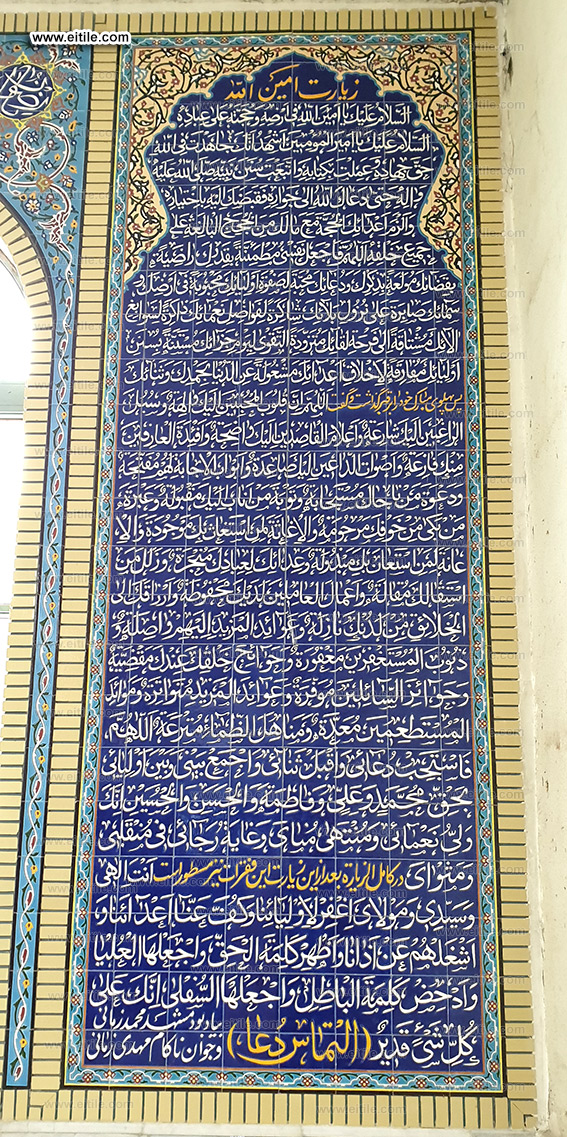 www.eitile.com
زیارت امین الله
السلام علیك یا امین الله فی ارضه وحجته علی عباده
السلام علیك یا امیر المومنین اشهد انك جاهدت فی الله
حق جهاده وعملت بکتابه واتبعت سنن نبیه صلی الله علیه
واله حتی دعاك الله الی جواره فقبضك الیه باختیاره
والزم اعدائك الحجة مع مالك من الحجج البالغة علی
جمیع خلقه اللهم فاجعل نفسی مطمئنة بقدرك راضیة
بقضائك مولعة بذکرك ودعائك محبة لصفوة اولیائك محبوبة فی ارضك و
سمائك صابرة علی نزول بلائك شاکرة لفواضل نعمائك ذاکرة لسوابغ
الائك مشتاقة الی فرحة لقائك متزودة التقوی لیوم جزائك مستنة بسنن
اولیائك مفارقة لاخلاق اعدائك مشغولة عن الدنیا بحمدك وثنائك
پس پهلوی مبارك خود را بر قبر گذاشت و گفت اللهم ان قلوب المخبتین الیك والهة وسبل
الراغبین الیك شارعة واعلام القاصدین الیك واضحة وافئدة العارفین
منك فازعة واصوات الداعین الیك صاعدة وابواب الاجابة لهم مفتحة
ودعوة من ناجاك مستجابة وتوبة من اناب الیك مقبولة وعبرة
من بکی من خوفك مرحومة والاغاثة لمن استغاث بك موجودة والا
عانة لمن استعان بك مبذولة وعداتك لعبادك منجزة وزلل من
استقالك مقالة واعمال العاملین لدیك محفوظة وارزاقك الی
الخلائق من لدنك نازلة وعوائد المزید الیهم واصلة و
ذنوب المستغفرین مغفورة وحوائج خلقك عندك مقضیة
وجوائز السائلین موفرة وعوائد المزید متواترة وموائد
المستطعمین معدة ومناهل الظماء مترعة اللهم
فاستجب دعائی واقبل ثنائی واجمع بینی وبین اولیائی
بحق محمد وعلی وفاطمة والحسن والحسین انك
ولی نعمائی ومنتهی منای وغایة رجائی فی منقلبی
ومثوای در کامل الزیارة بعد از این زیارت این فقرات نیز مسطور است انت الهی
وسیدی ومولای اغفر لاولیائنا وکف عنا اعدائنا و
اشغلهم عن اذانا واظهر کلمة الحق واجعلها العلیا
وادحض کلمة الباطل واجعلها السفلی انك علی
کل شیء قدیر (التماس دعا) یادبود مشهد محمد زمانی
و جوان ناکام مهدی زمانی
www.eitile.com